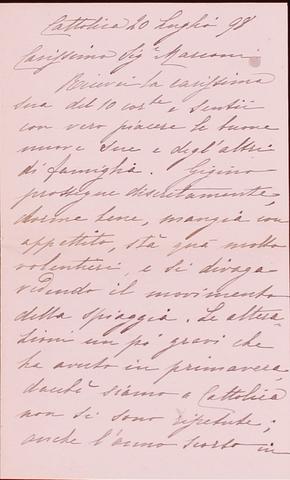 Cattolica 20 Luglio 98
Carissimo Sigr Marconi
Ricevei la carissima
sua del 10 corte e sentii
con vero piacere le buone
nuove Sue e degl'altri
di famiglia. Gigino
prosegue discretamente,
dorme bene, mangia con
appettito, stà quà molto
volentieri, e si divaga
vedendo il movimento
della spiaggia. Le altera=
zioni un pó gravi che
ha avuto in primavera,
dacchè siamo a Cattolica
non si sono ripetute;
anche l'anno scorso in